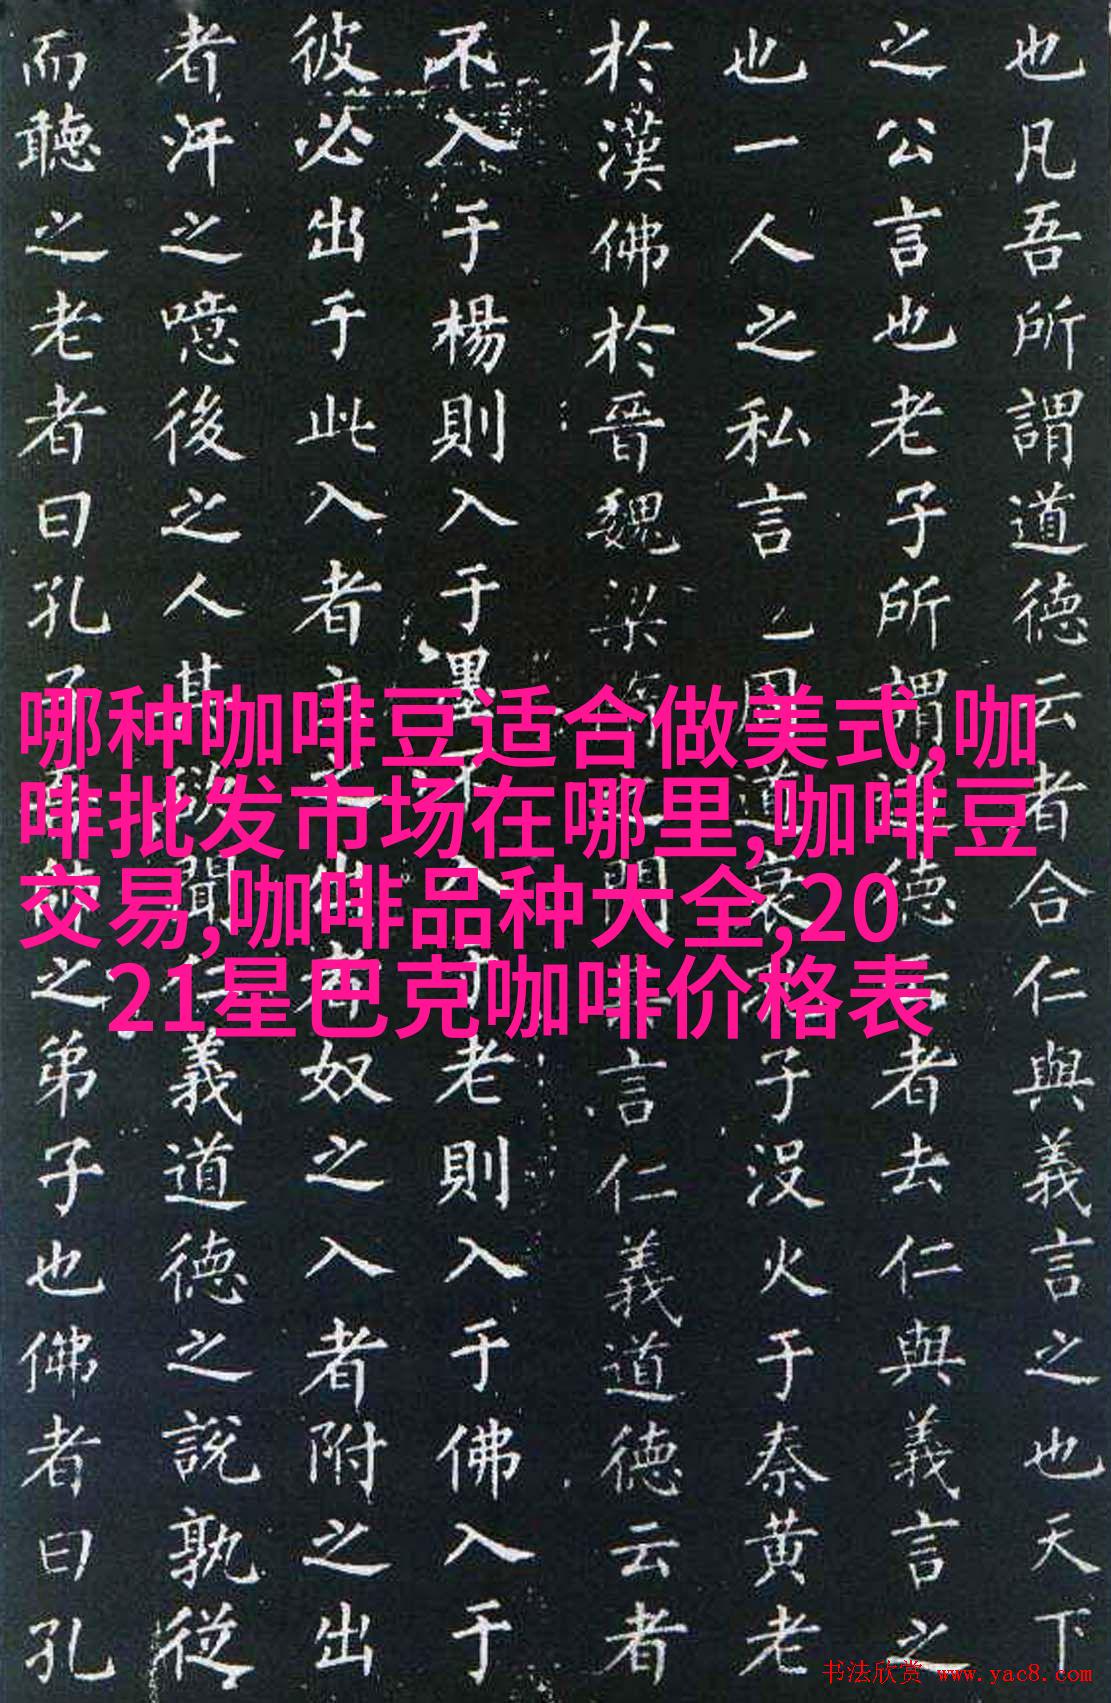 也凡吾所謂道德云者合仁與義言之也天下
之公言也老子所謂道德云者去仁與義言之
也一人之私言周道衰孔子没火于秦黄老
於漢佛於晉魏梁隋之間其言仁義道德云者
不入于楊則入于墨不入于老則入于佛入于
彼必出于此入者主之出者奴之入者附之出
者汙之噫後之人其欲聞仁義道德之説孰從
而聽之老者曰孔子吾師之弟子也佛者曰孔
哪种咖啡豆适合做美式,咖
啡批发市场在哪里,咖啡豆
交易,咖啡品种大全,20
21星巴克咖啡价格表
书法欣赏 www.yac8.com